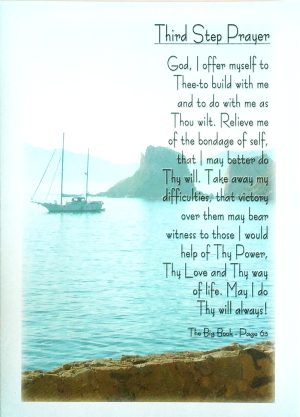 Third Step Prayer
God, I offer myself to
Thee-to build with me
and to do with me as
Thou wilt. Relieve me
of the bondage of self,
that I may better do
Thy will. Take away my
difficulties, that victory
over them may bear
witness to those I would
help of Thy Power,
Thy Love and Thy way
of life. May I do
Thy will always!
The Big Book - Page 63